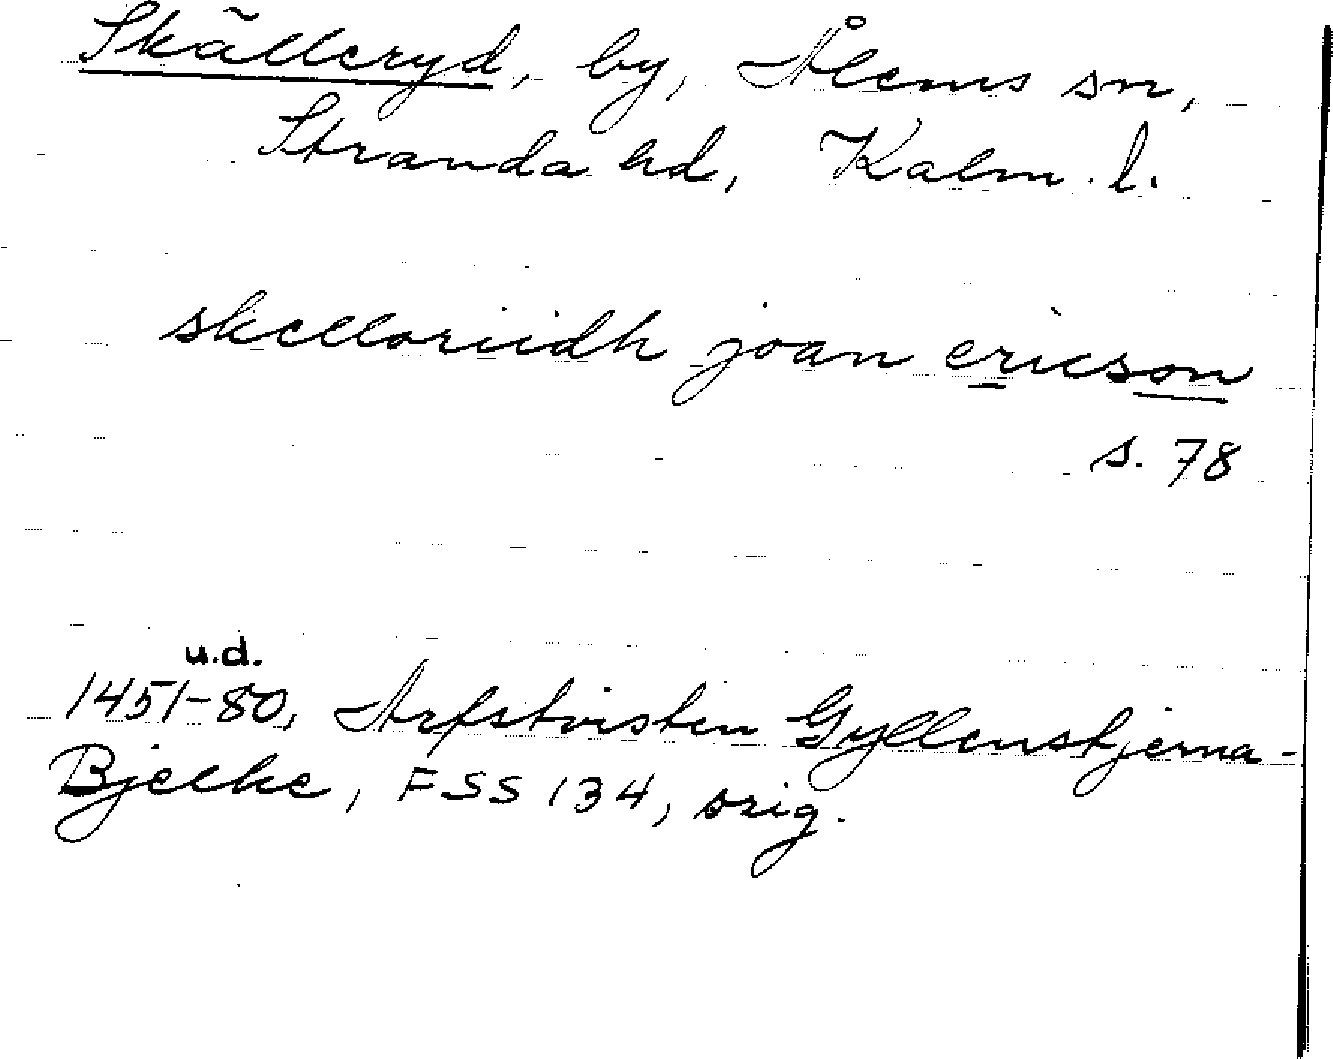 Skälleryd, by, Ålems sn,
Stranda hd, Kalm. l.
skelloriidh joan ericson
s. 78
u.d.
1451-80, Arfstvisten Gyllenstjerna-
Bjelke, FSS 134, orig.